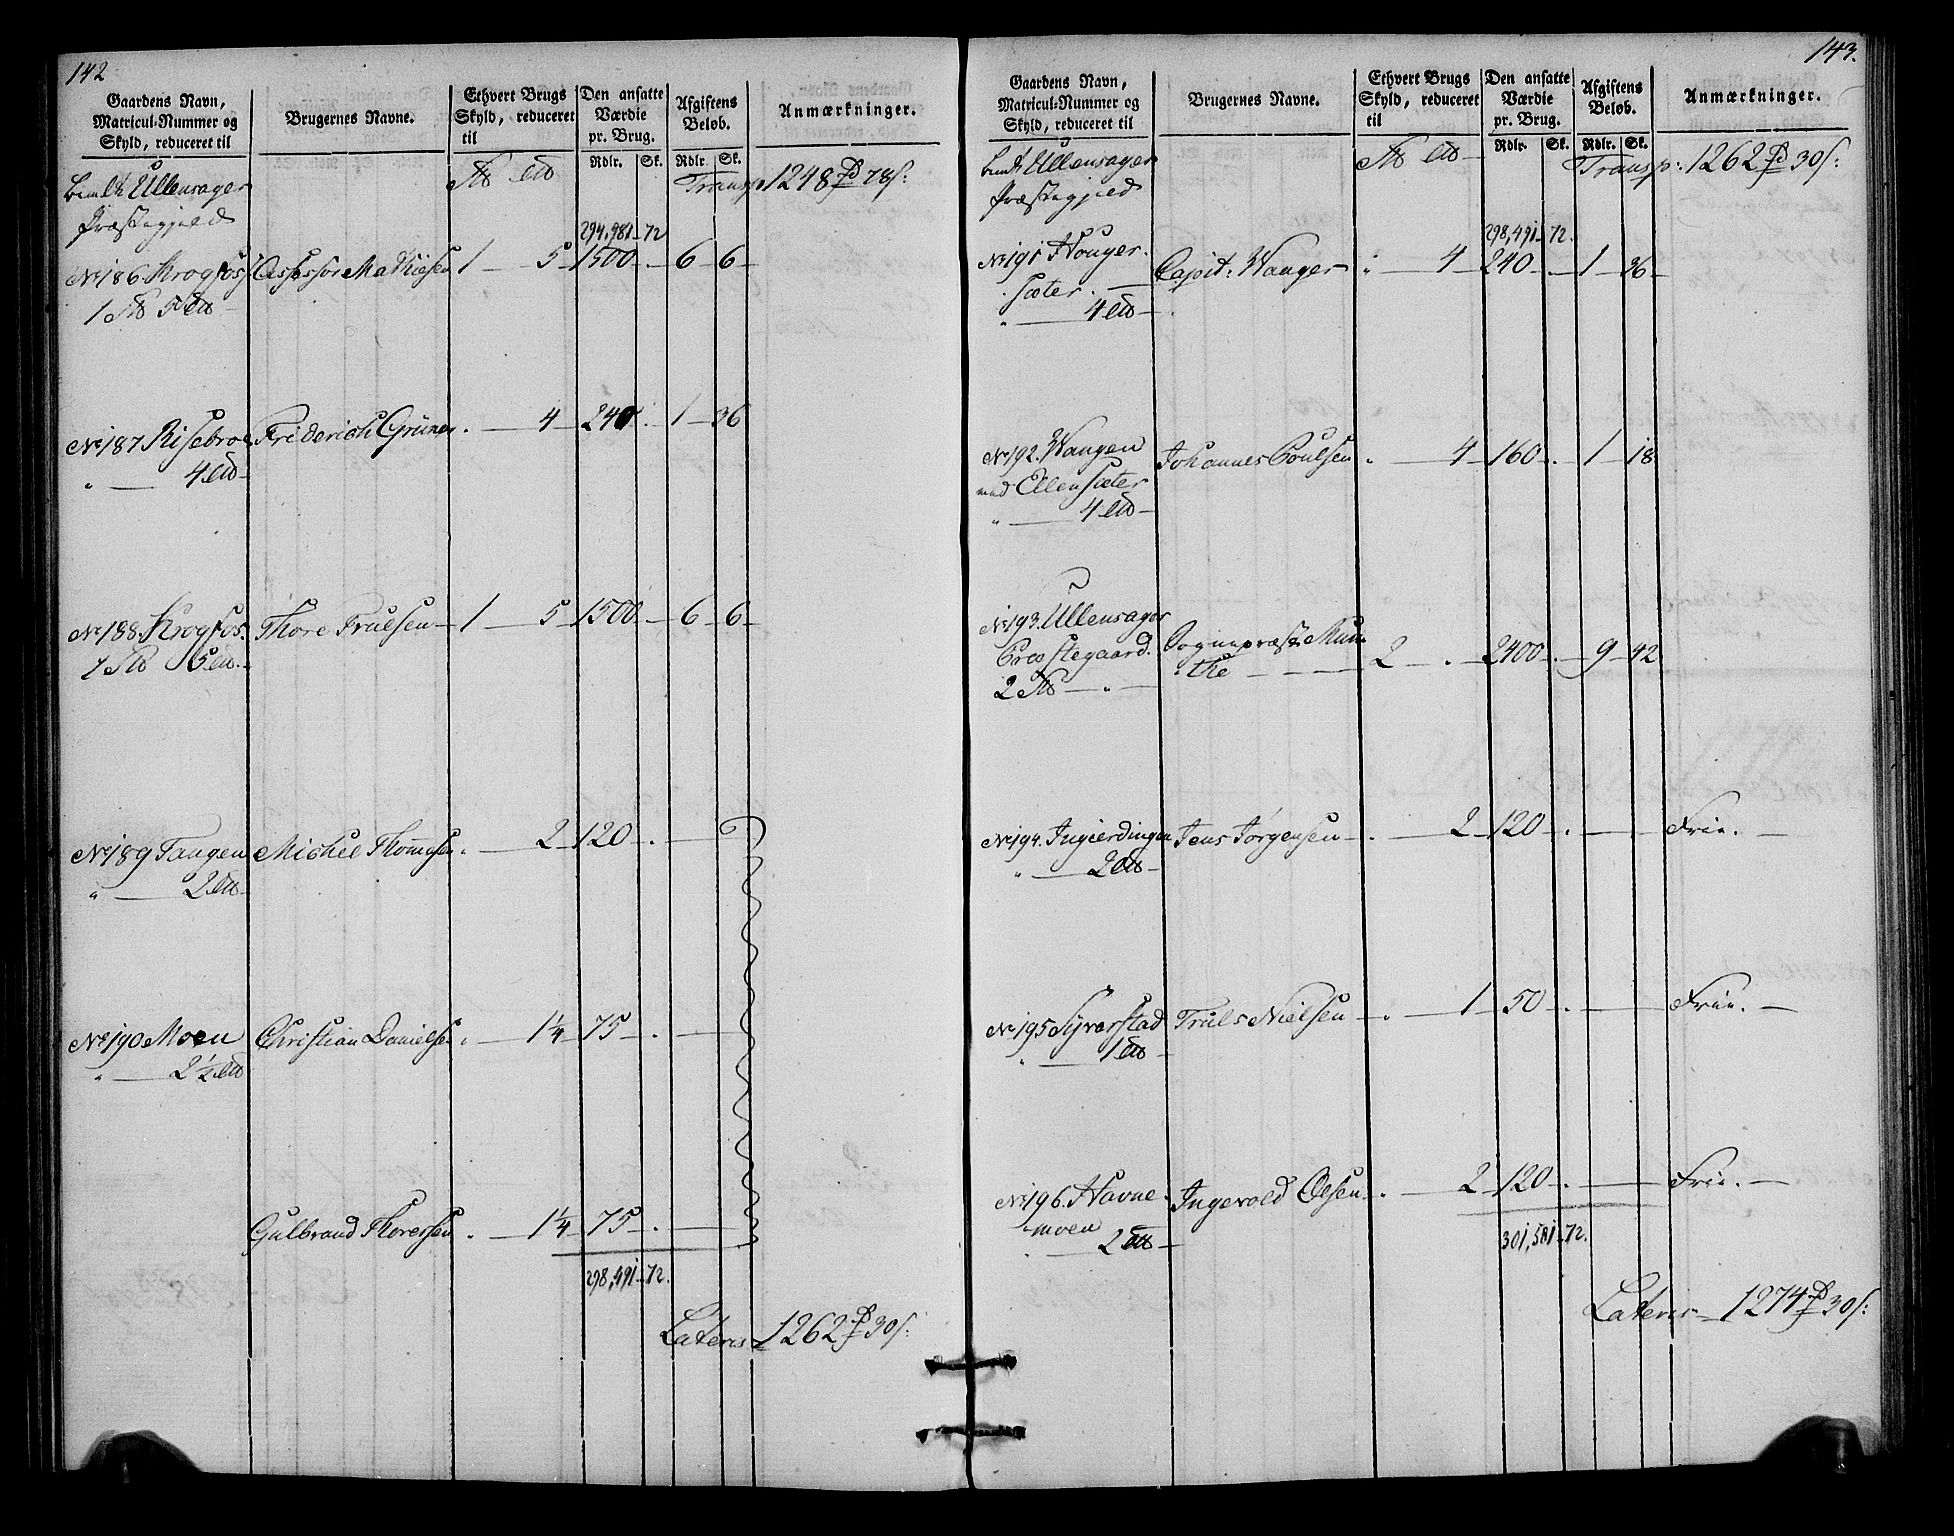 142
Gaardens Navn, Matricul-Nummer og Skyld, reduceret til
Brugernes Navne.
Ethvert Brugs Skyld, reduceret til
Den ansatte Værdie pr. Brug.
Afgiftens Beløb.
Anmærkninger.
Rdlr. Sk. Rdlr. Sk.
Ullensager Præstegjeld
Transp 1248 78 s:
294,981-72
No 186. Krogfos Assessor Mathiesen 1 - 5 - 1500 - . - 6 - 6 -
1 5
No 187 Risebroe Friderich Grüner . - 4 - 240 . - 1 - 36
" - 4
No 188. Krogfos. Thore Trulsen - 1 - 5 - 1500 - . - 6 - 6 -
1 5
No 189 Tangen Michel Thomesen . - 2 - 120 - . -
" - 2
No 190 Moen Christian Danielsen . - 1 1/4 - 75 - . -
" - 2 1/2
Gulbrand Thoresen . - 1 1/4 - 75 - . -
298,491-72.
Lateris 1262 30 s:
143.
Gaardens Navn, Matricul-Nummer og Skyld, reduceret til
Brugernes Navne.
Ethvert Brugs Skyld, reduceret til
Den ansatte Værdie pr. Brug.
Afgiftens Beløb.
Anmærkninger.
Rdlr. Sk. Rdlr. Sk.
Ullensager Præstegjeld
Transp: 1262 30 s:
298,491-72.
No 191 Houger- Capit: Wanger " - 4 - 240 - . - 1 - 36 -
sæter. -
" - 4
No 192. Wangen Johannes Poulsen " - 4 - 160 - . - 1 - 18
med Ellensæter
" - 4
No 193. Ullensager
Præstegaard. Sognepræst Mun-
2 - " - the - - - 2 - . - 2400 - . - 9 - 42
No 194. Ingierdingen Jens Jørgensen - . - 2 - 120 - . - Frie. -
" - 2
No 195 Syverstad Truls Nielsen - . - 1 - 50 - . - Frie. -
" - 1
No 196. Havne- Ingevold Olsen - . - 2 - 120 - . - Frie. -
moen
2
301,581-72.
Lateris - 1274 30 s: